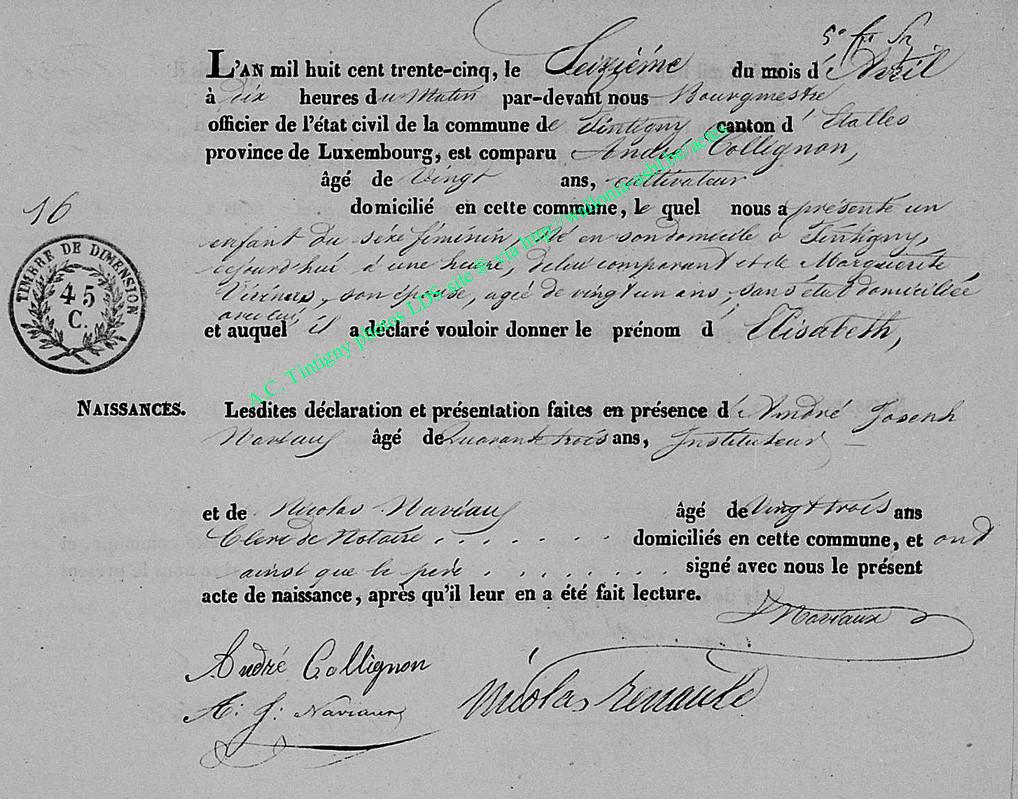 L'AN mil huit cent trente-cinq, le Seizième du mois d'Avril
à dix heures du Matin par-devant nous Bourgmestre
officier de l'état civil de la commune de Tintigny canton d'Etalle
province de Luxembourg, est comparu André Collignon,
âgé de vingt ans, cultivateur
domicilié en cette commune, le quel nous a présenté un
enfant du séxe féminin, né en son domicile à Tintigny,
cejourd'hui à une heure, de lui comparant et de Marguerite
son épouse, agée de vingt un ans, sans état domiciliée
avec lui,
et auquel il a déclaré vouloir donner le prénom d'Elisabeth,
16
TIMBRE DE DIMENSION
45
C.
NAISSANCES.
Lesdites déclaration et présentation faites en présence d'André Joseph
Naviaux âgé de Quarante trois ans, Instituteur
et de Nicolas Naviaux âgé de Vingt trois ans
Clerc de Notaire domiciliés en cette commune, et ont
ainsi que le père signé avec nous le présent
acte de naissance, après qu'il leur en a été fait lecture.
Naviaux
André Collignon
A. J. Naviaux
Nicolas Renauld
A.C. Tintigny photos LDS site ® via http://wallonia-asbl.be/actes